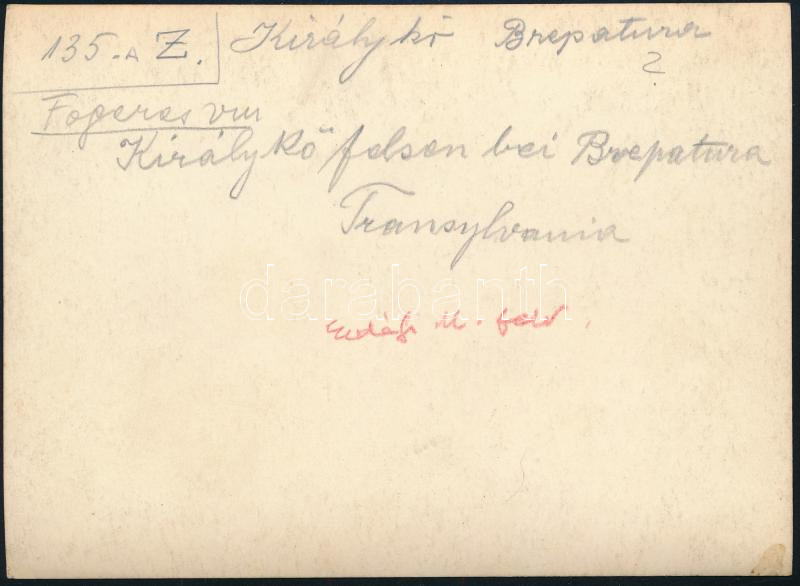 135.-A Z. Királykő Brepatura
?
Fogaras vm
Királykő felsen bei Brepatura
Transylvania
darabanth
M. felv.